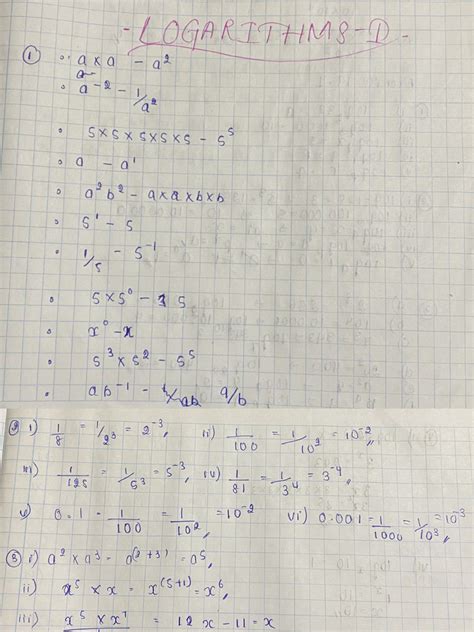 - LOGARITHMS-I -
① ∘ a x a - a²
∘ a⁻² - 1/a²
∘ 5 x 5 x 5 x 5 x 5 - 5⁵
∘ a - a¹
∘ a²b² - a x a x b x b
∘ 5¹ - 5
∘ 1/5 - 5⁻¹
∘ 5 x 5⁰ - 5
∘ x⁰ - x
∘ 5³ x 5² - 5⁵
∘ ab⁻¹ - a/b
② i) 1/8 = 1/2³ = 2⁻³, ii) 1/100 = 1/10² = 10⁻²,,
iii) 1/125 = 1/5³ = 5⁻³, iv) 1/81 = 1/3⁴ = 3⁻⁴,
v) 0.1 - 1/100 = 1/10², = 10⁻² vi) 0.001 = 1/1000 = 1/10³, = 10⁻³
③ i) a² x a³ - a⁽²⁺³⁾ = a⁵,
ii) x⁵ x x = x⁽⁵⁺¹⁾ = x⁶,
iii) x⁵ x x⁷ = 12x - 11 = x